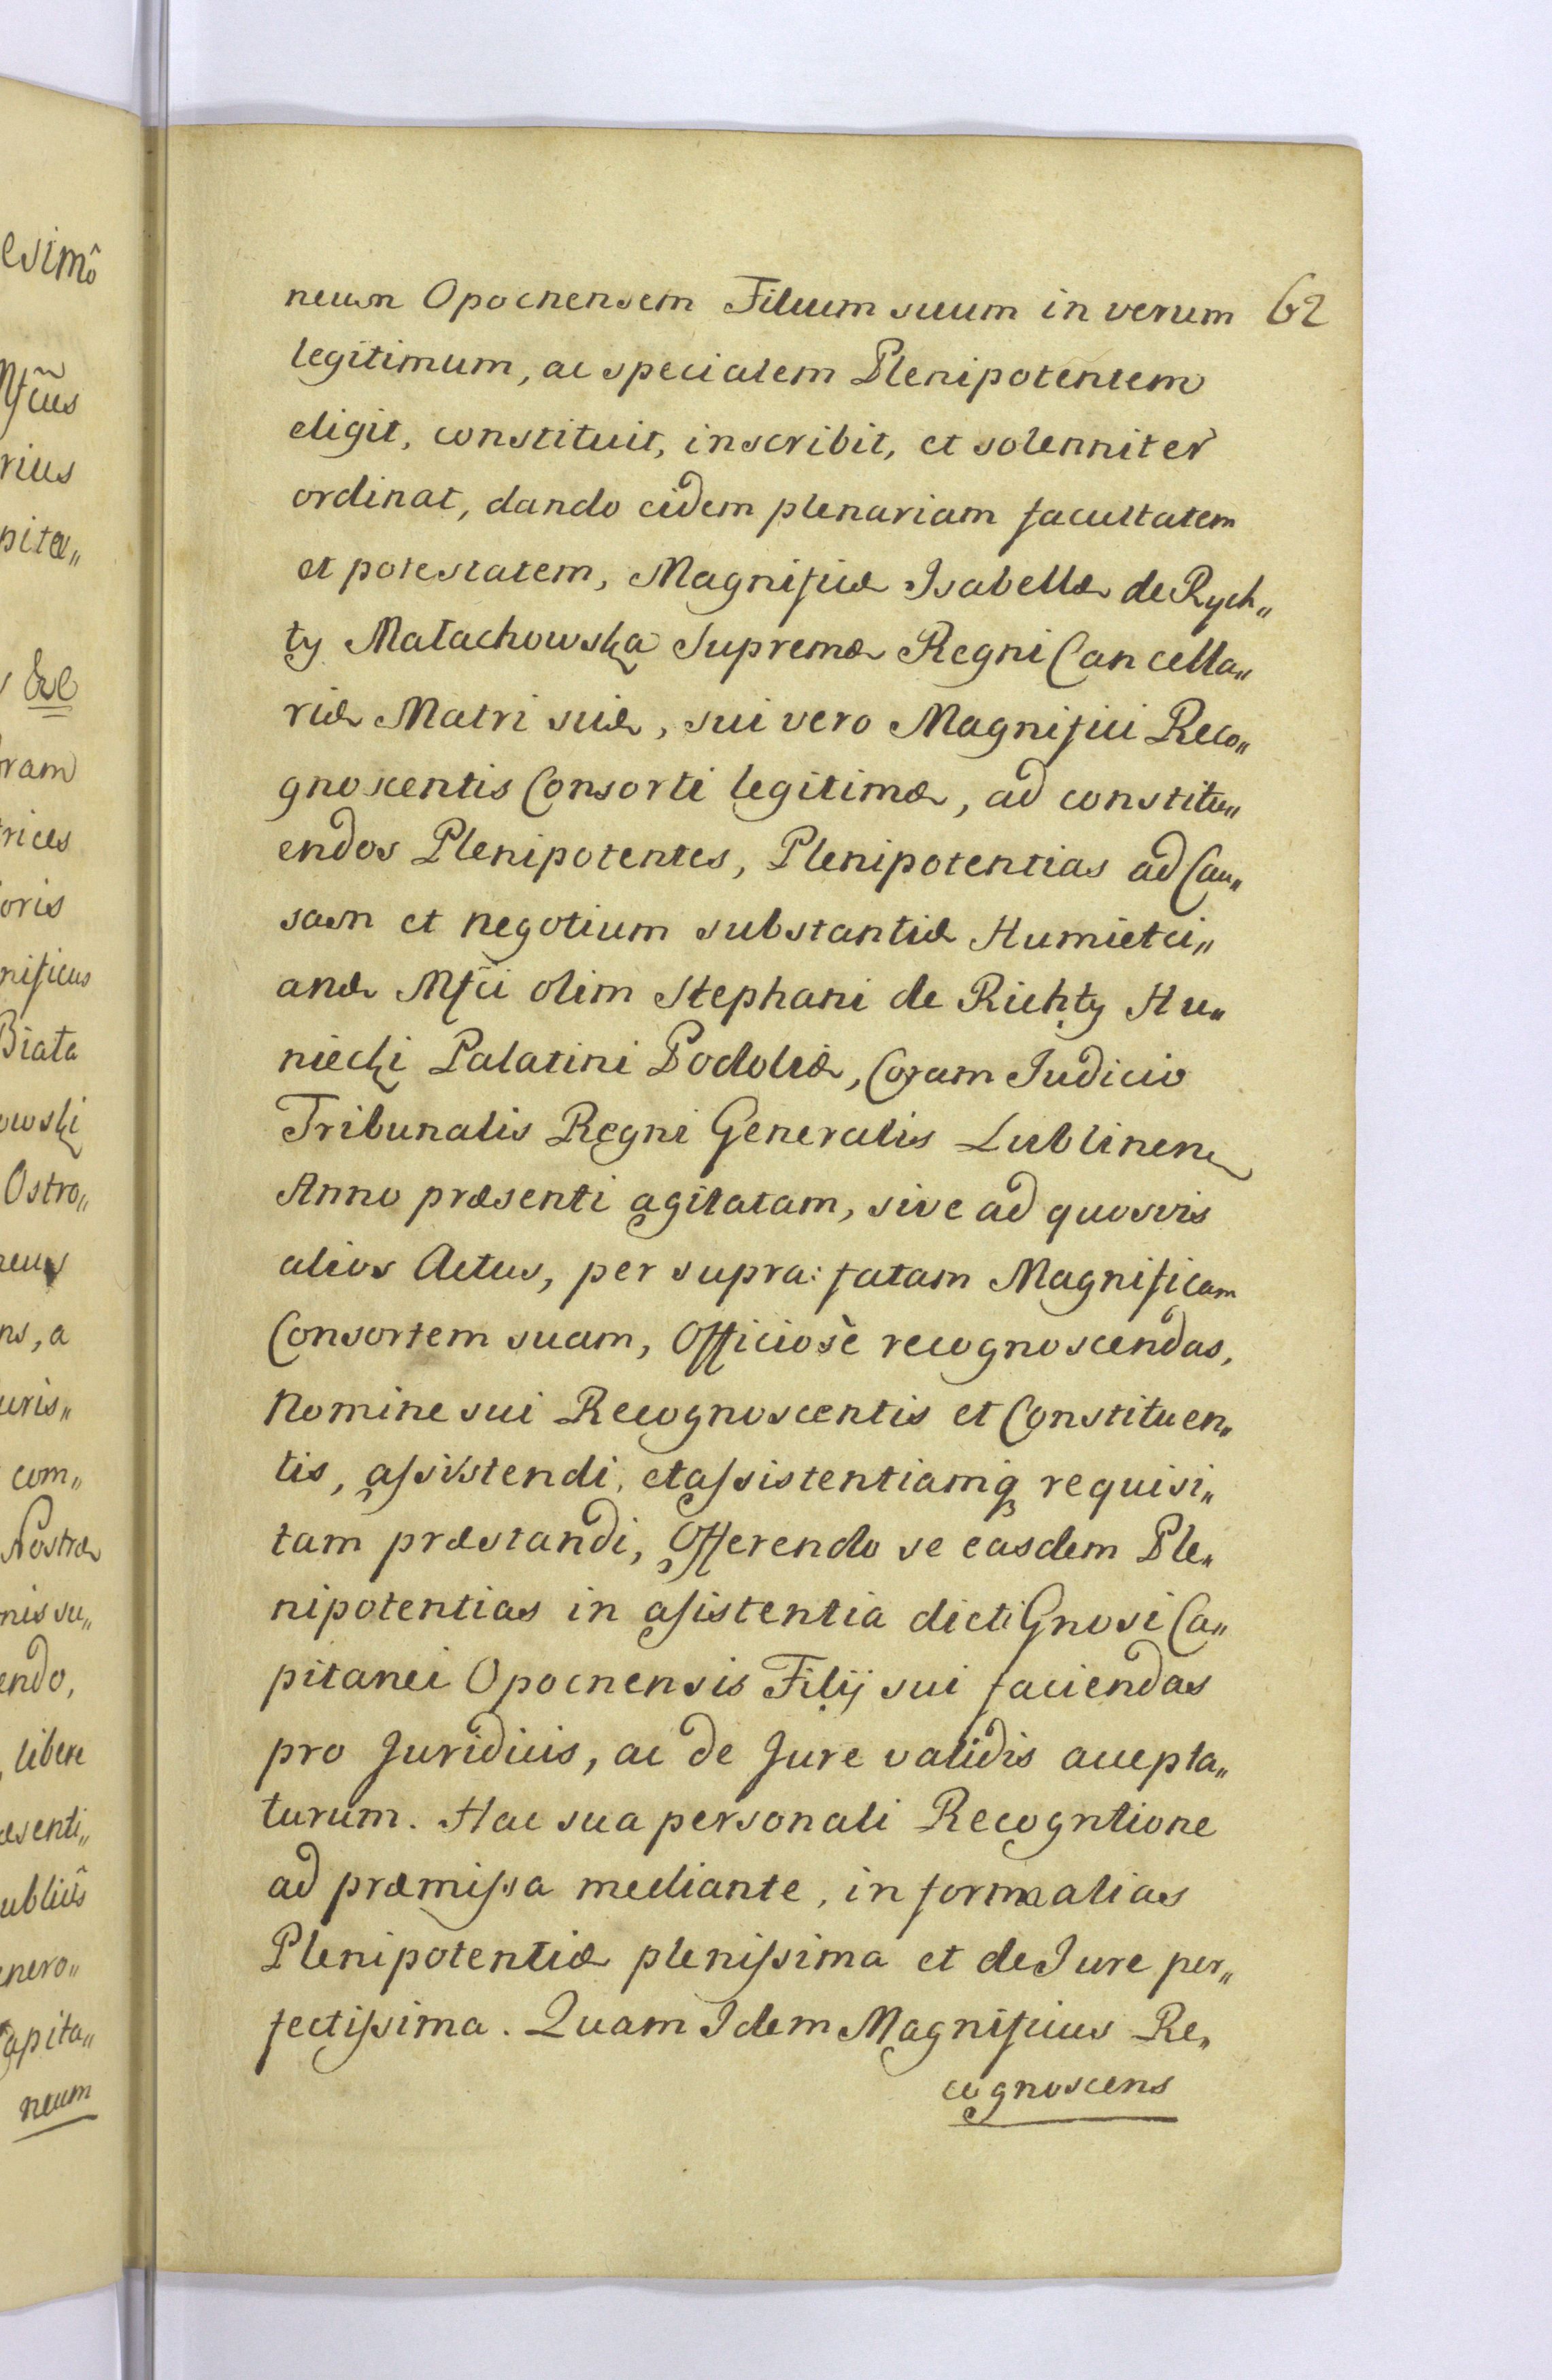 neum Opocnensem Filium suum in verum 62
legitimum, ac specialem Plenipotentem
eligit, constituit, inscribit, et solenniter
ordinat, dando eidem plenariam facultatem
et potestatem, Magnificæ Isabellæ de Rych„
ty Małachowska Supremæ Regni Cancella„
riæ Matri suæ, sui vero Magnifici Reco„
gnoscentis Consorti legitimæ, ad constitu„
endos Plenipotentes, Plenipotentias ad Cau„
sam et negotium substantiæ Humietci„
anæ Mfci olim Stephani de Richty Hu„
niecki Palatini Podoliæ, Coram Iudicio
Tribunalis Regni Generalis Lublinen
Anno præsenti agitatam, sive ad quosvis
alios Actus, per supra: fatam Magnificam
Consortem suam, Officiosè recognoscendas,
Nomine sui Recognoscentis et Constituen„
tis, assistendi, et assistentiamq requisi„
tam præstandi, Offerendo se easdem Ple„
nipotentias in asistentia dicti Gnosi Ca„
pitanei Opocnensis Filij sui faciendas
pro Juridicis, ac de Jure validis accepta„
turum. Hac sua personali Recogntione
ad præmissa mediante, in forma alias
Plenipotentiæ plenissima et de Iure per„
fectissima. Quam Idem Magnificus Re„
cognoscens
esimô
Mfcus
rius
pita„
&c
oram
trices
oris
nificus
Biała
owski
Ostro„
neus
ns, a
uris„
com„
Nostræ
nis su„
endo,
libere
æsenti„
ubliûs
enero„
Capita„
neum